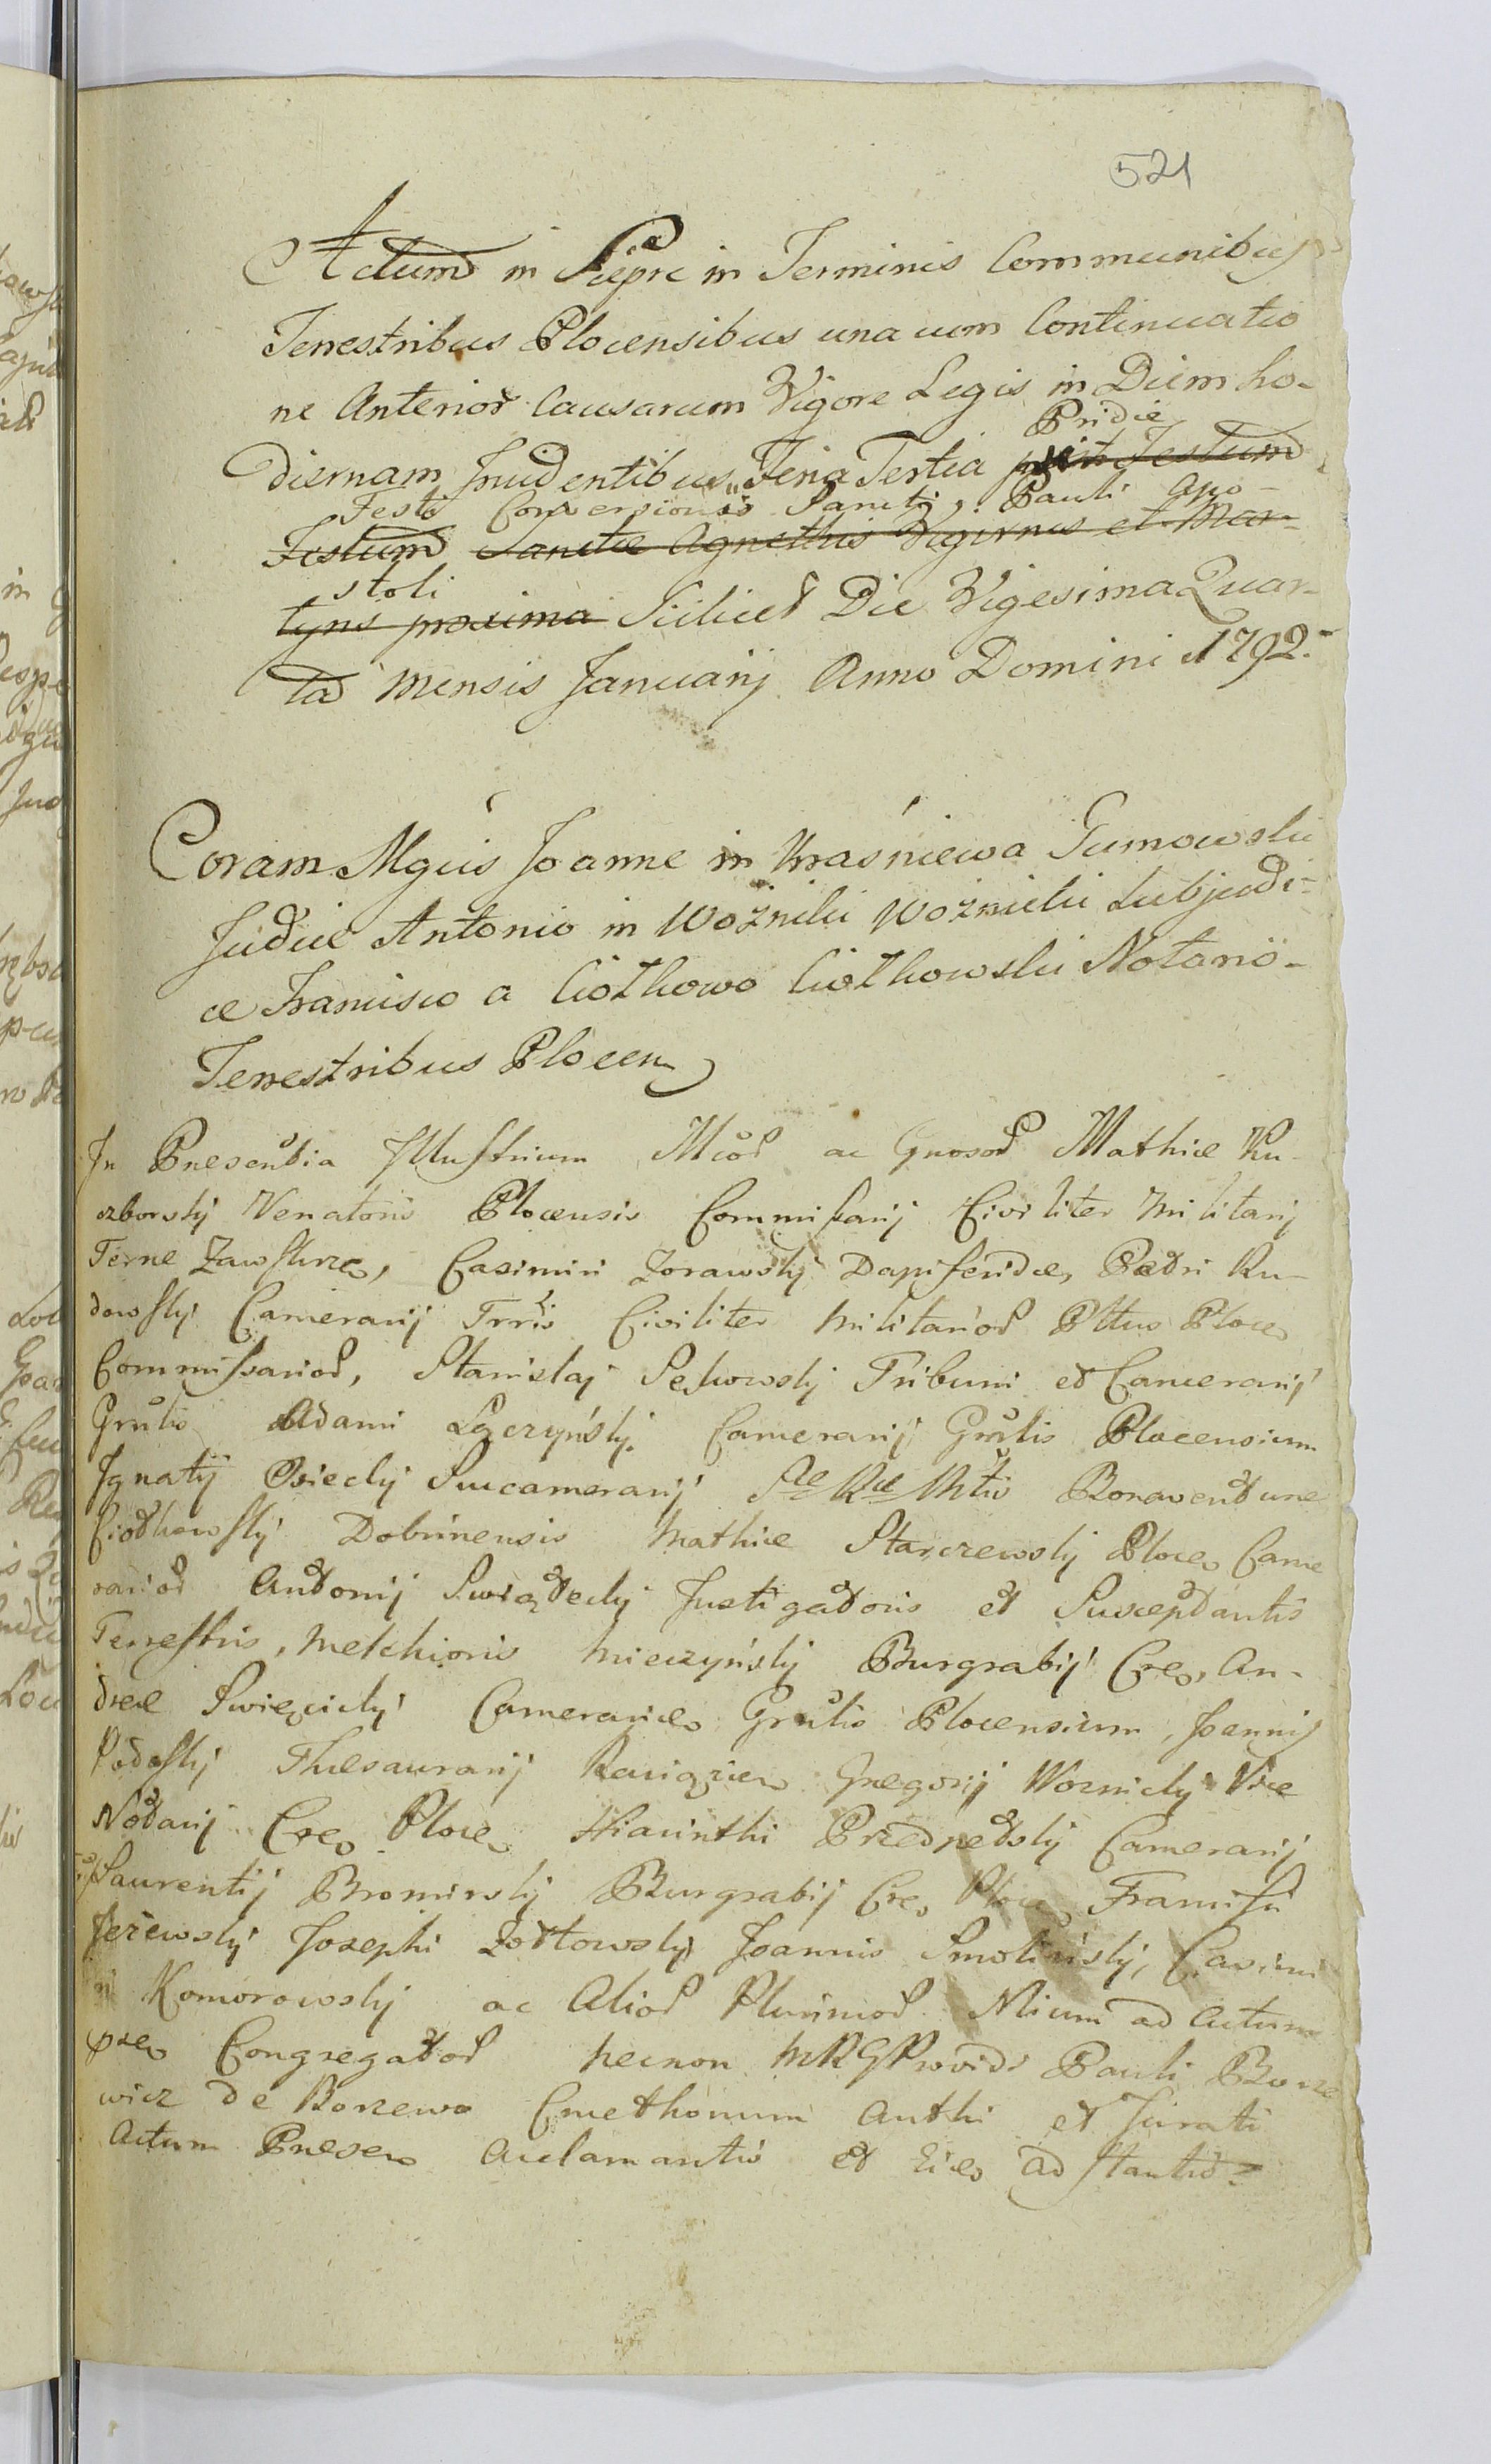 521
Actum in Sieprc in Terminis Communibus
Terrestribus Plocensibus una cum Continuatio
ne Anterior Causarum Vigore Legis in Diem ho-
Pridie
diernam Incidentibus Feria Tertia post Festum
Festo Conversionis Sancti Pauli Apo-
Festum Sanctae Agnethis Virginis et Mar-
stoli
tyris proxima Scilicet Die Vigesima Quar-
ta Mensis Januarij Anno Domini 1792.
Coram Mgcis Joanne in Kraśniewa Gumowski
Judice Antonio in Woźniki Woźnicki Subjudi-
ce Francisco a Ciółkowo Ciółkowski Notario
Terrestribus Plocen
In Presentia Illustrium Mcor ac Gnosor Mathiae Ku-
czborskj Venatoris Plocensis Commissarij Civiliter Militarij
Terrae Zawskrzen, Casimiri Zorawskj Dapiferidae, Petri Ru-
dowskj Camerarij Trris Civiliter Militarior Pttus Plocen
Commissarior, Stanislaj Sękowskj Tribuni et Camerarij
Grnlis Adami Łączyńskj Camerarij Grnlis Plocensium
Ignatij Osieckj Succamerarij Sae Rae Mttis Bonaventurae
Ciołkowskj Dobrinensis Mathiae Starczewskj Plocen Came
rarior Antonij Swiąteckj Instigatoris et Susceptantis
Terrestris, Melchioris Mieczyńskj Burgrabij Cren, An-
dreae Swięcickj Grnlis Plocensium, Joannis
Podoskj Thesaurarij Raciązien Gregorij Woznickj Vice
Notarij Cren Plocen Hiacinthi Przedpełskj Camerarij
Laurentij Bromirskj Burgrabij Cren Plocen Francisci
Jeżewskj Josephi Żołtowskj Joannis Smolińskj, Casimi
ri Komorowskj ac Alior Plurimor Nlium ad Actum
psen Congregator necnon Providi Pauli
wicz de Borzewo Cmethonum Authi et Jurati
Actum Presen Acclamantis et Eiden adstantis